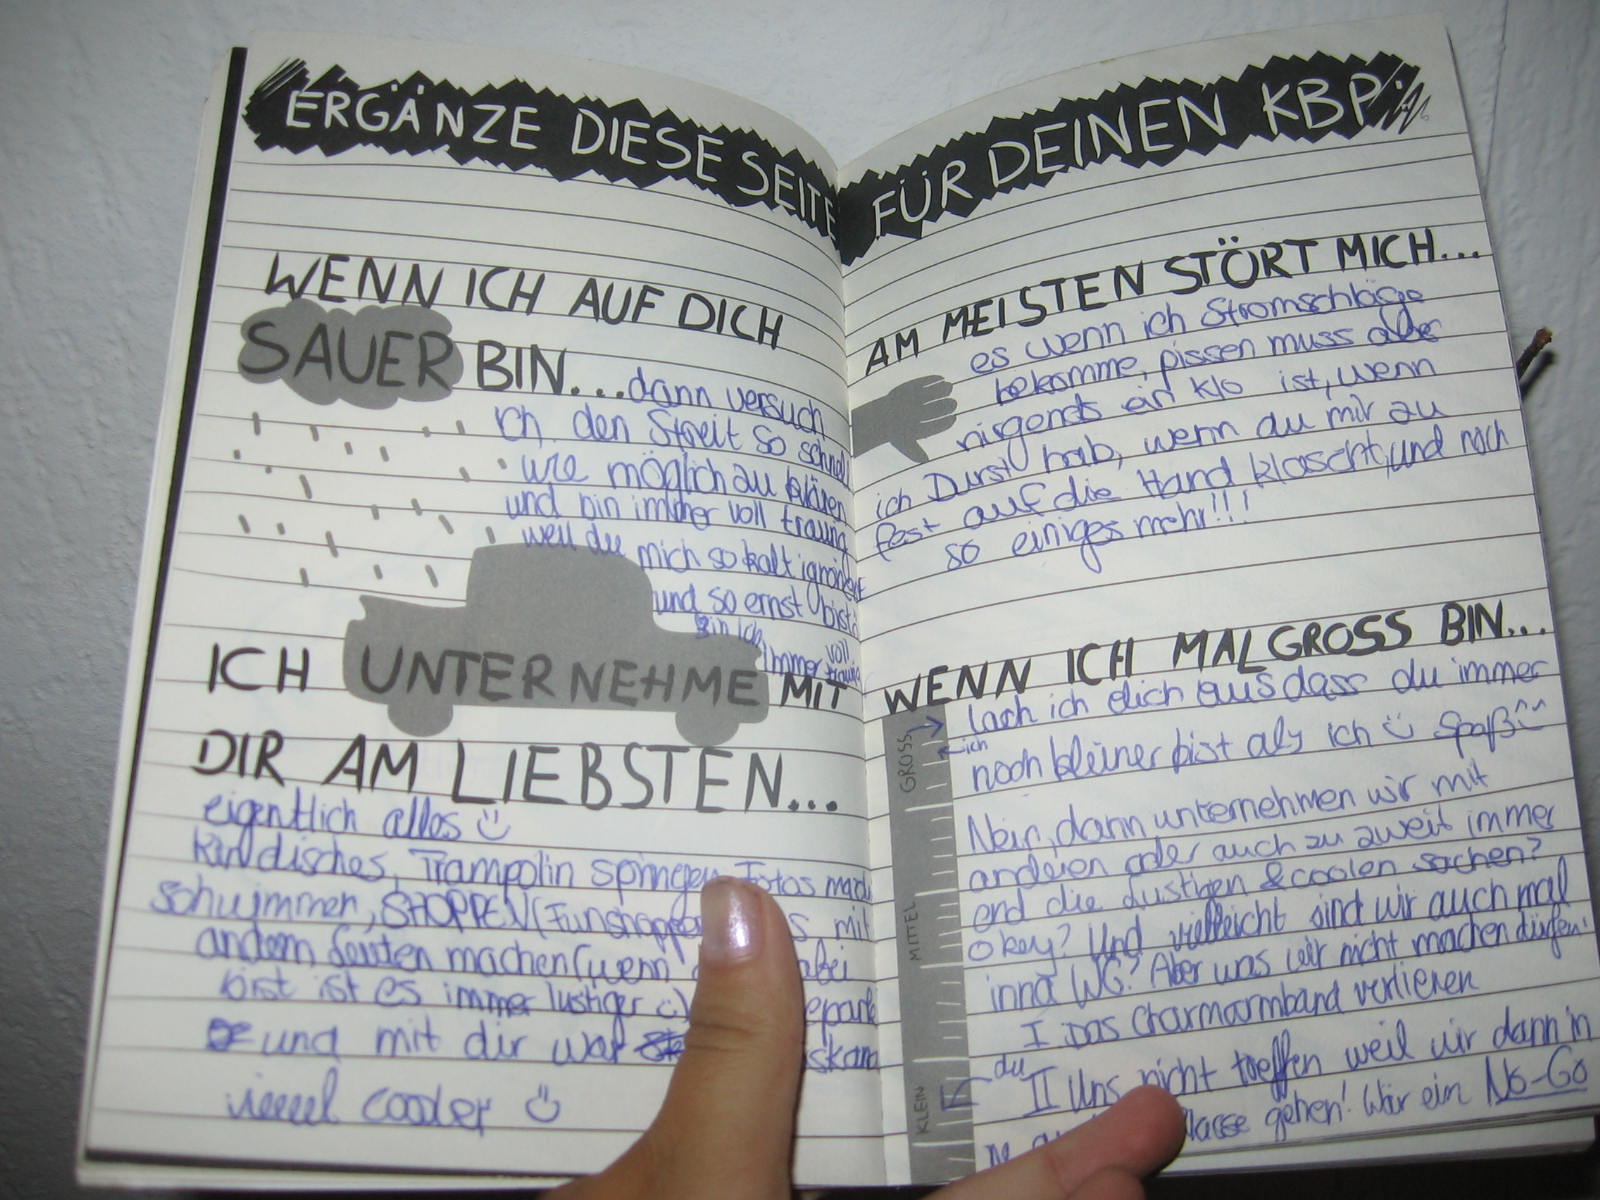 ERGÄNZE DIESE SEITE FÜR DEINEN KBP
WENN ICH AUF DICH
SAUER BIN... dann versuch
ich den Streit so schnell
wie möglich zu klären
und bin immer voll traurig
weil du mich so kalt ignorierst
und so ernst bist
bin ich
immer voll traurig
ICH UNTERNEHME MIT
DIR AM LIEBSTEN...
eigentlich alles
Kindisches, Trampolin springen, Fotos mach
schwimmen, SHOPPEN (Funshoppen s mit
andern Leuten machen (wenn abei
bist ist es immer lustiger :)
und mit dir war
vieeel cooler
AM MEISTEN STÖRT MICH...
es wenn ich Stromschläge
bekomme, pissen muss aber
nirgends ein Klo ist, wenn
ich Durst hab, wenn du mir zu
fest auf die Hand klascht, und noch
so einiges mehr!!!
WENN ICH MAL GROSS BIN...
lach ich dich aus dass du immer
noch kleiner bist als ich Spaß ^^
Nein, dann unternehmen wir mit
anderen oder auch zu zweit immer
ond die lustigen & coolen sachen?
Okay? Und vielleicht sind wir auch mal
inna WG? Aber was wir nicht machen dürfen:
I Das Charmarmband verlieren
II Uns nicht treffen weil wir dann in
ne klasse gehen! Wär ein No-Go
GROSS
ich
MITTEL
KLEIN
du